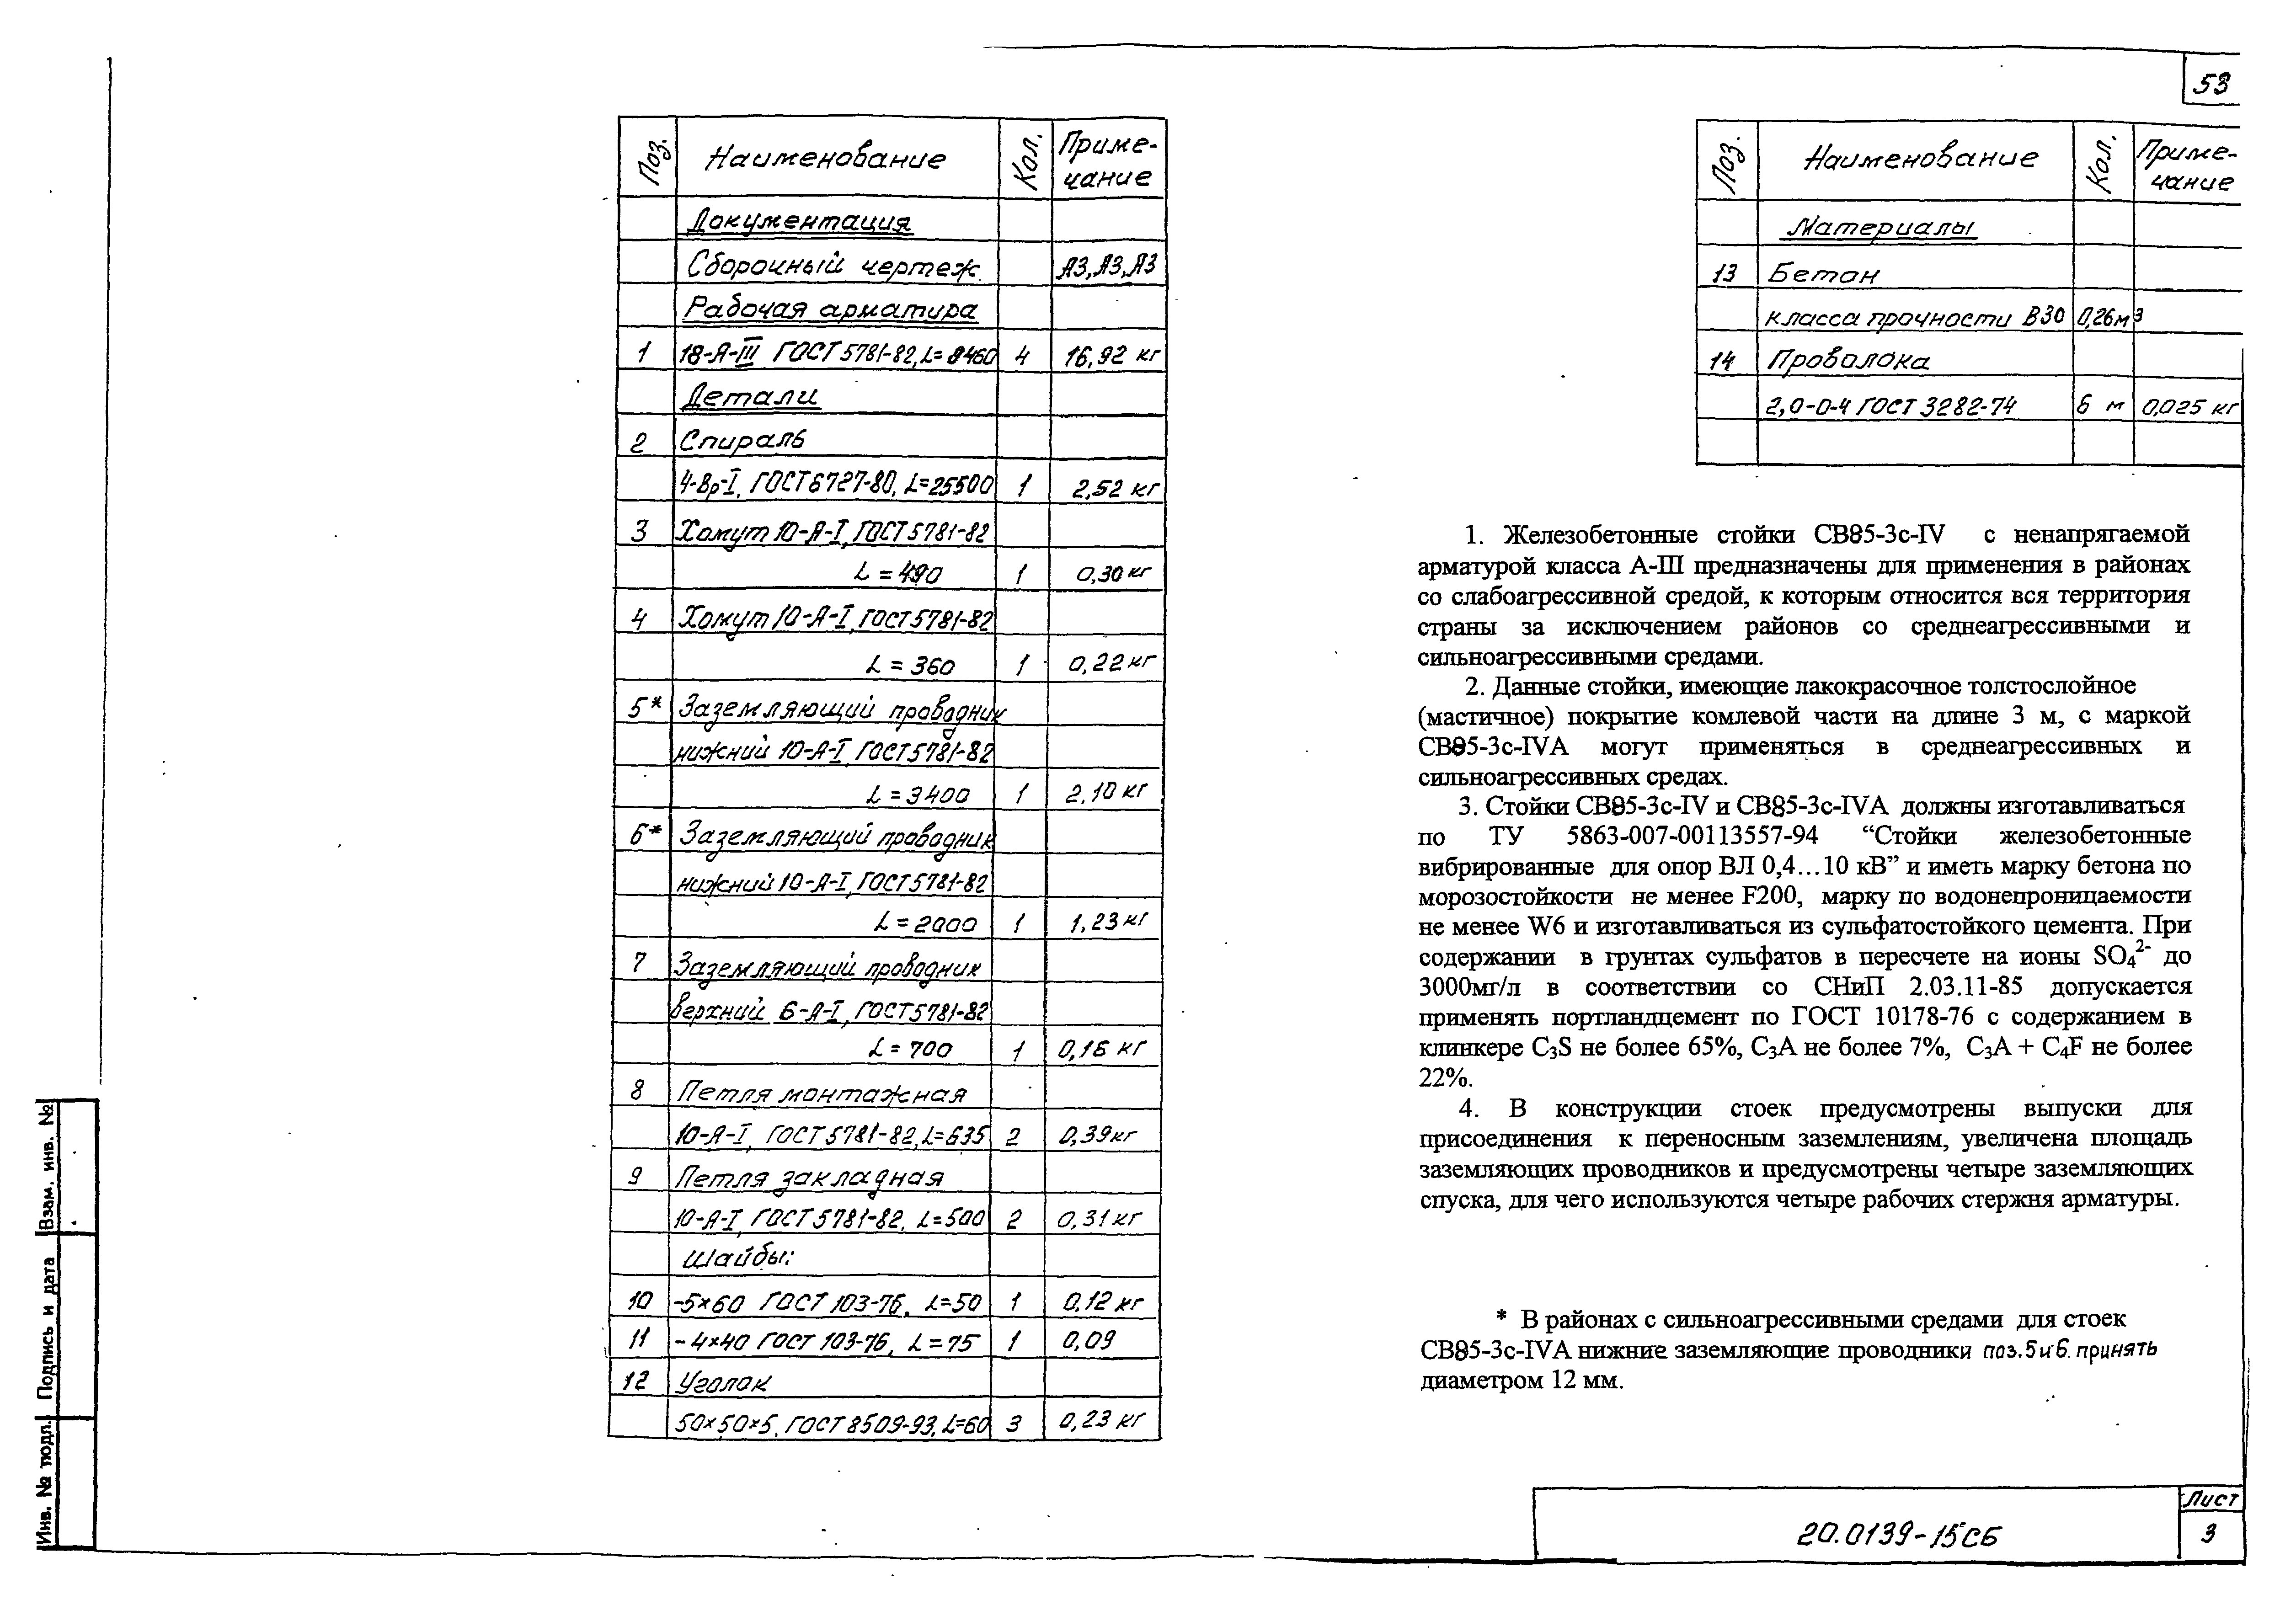 53
Поз. Наименование Кол. Приме-чание
Документация
Сборочный чертеж А3, А3, А3
Рабочая арматура
1 18-А-III ГОСТ 5781-82, L= 8460 4 16,92 кг
Детали
2 Спираль
4-Вр-I, ГОСТ 6727-80, L=25500 1 2,52 кг
3 Хомут 10-А-I, ГОСТ 5781-82
L = 490 1 0,30 кг
4 Хомут 10-А-I, ГОСТ 5781-82
L = 360 1 0,22 кг
5* Заземляющий проводник
нижний 10-А-I, ГОСТ 5781-82
L = 3400 1 2,10 кг
6* Заземляющий проводник
нижний 10-А-I, ГОСТ 5781-82
L = 2000 1 1,23 кг
7 Заземляющий проводник
верхний 6-А-I, ГОСТ 5781-82
L = 700 1 0,16 кг
8 Петля монтажная
10-А-I, ГОСТ 5781-82, L=635 2 0,39 кг
9 Петля закладная
10-А-I, ГОСТ 5781-82, L=500 2 0,31 кг
Шайбы:
10 -5×60 ГОСТ 103-76, L=50 1 0,12 кг
11 -4×40 ГОСТ 103-76, L=75 1 0,09
12 Уголок
50×50×5, ГОСТ 8509-93, L=60 3 0,23 кг
Поз. Наименование Кол. Приме-чание
Материалы
13 Бетон
класса прочности В30 0,26м3
14 Проволока
2,0-0-Ч ГОСТ 3282-74 6 м 0,025 кг
1. Железобетонные стойки СВ85-3с-IV с ненапрягаемой
арматурой класса А-III предназначены для применения в районах
со слабоагрессивной средой, к которым относится вся территория
страны за исключением районов со среднеагрессивными и
сильноагрессивными средами.
2. Данные стойки, имеющие лакокрасочное толстослойное
(мастичное) покрытие комлевой части на длине 3 м, с маркой
СВ85-3с-IVА могут применяться в среднеагрессивных и
сильноагрессивных средах.
3. Стойки СВ85-3с-IV и СВ85-3с-IVА должны изготавливаться
по ТУ 5863-007-00113557-94 “Стойки железобетонные
вибрированные для опор ВЛ 0,4…10 кВ” и иметь марку бетона по
морозостойкости не менее F200, марку по водонепроницаемости
не менее W6 и изготавливаться из сульфатостойкого цемента. При
содержании в грунтах сульфатов в пересчете на ионы SO₄²⁻ до
3000мг/л в соответствии со СНиП 2.03.11-85 допускается
применять портландцемент по ГОСТ 10178-76 с содержанием в
клинкере С₃S не более 65%, С₃А не более 7%, С₃А + С₄F не более
22%.
4. В конструкции стоек предусмотрены выпуски для
присоединения к переносным заземлениям, увеличена площадь
заземляющих проводников и предусмотрены четыре заземляющих
спуска, для чего используются четыре рабочих стержня арматуры.
* В районах с сильноагрессивными средами для стоек
СВ85-3с-IVА нижние заземляющие проводники поз.5 и 6. принять
диаметром 12 мм.
Инв. № подл. Подпись и дата Взам. инв. №
20.0139-15СБ
Лист
3